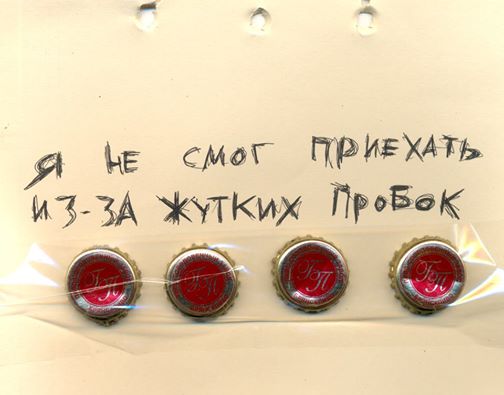 Я НЕ СМОГ ПРИЕХАТЬ
ИЗ-ЗА ЖУТКИХ ПРОБОК
БП БП БП БП